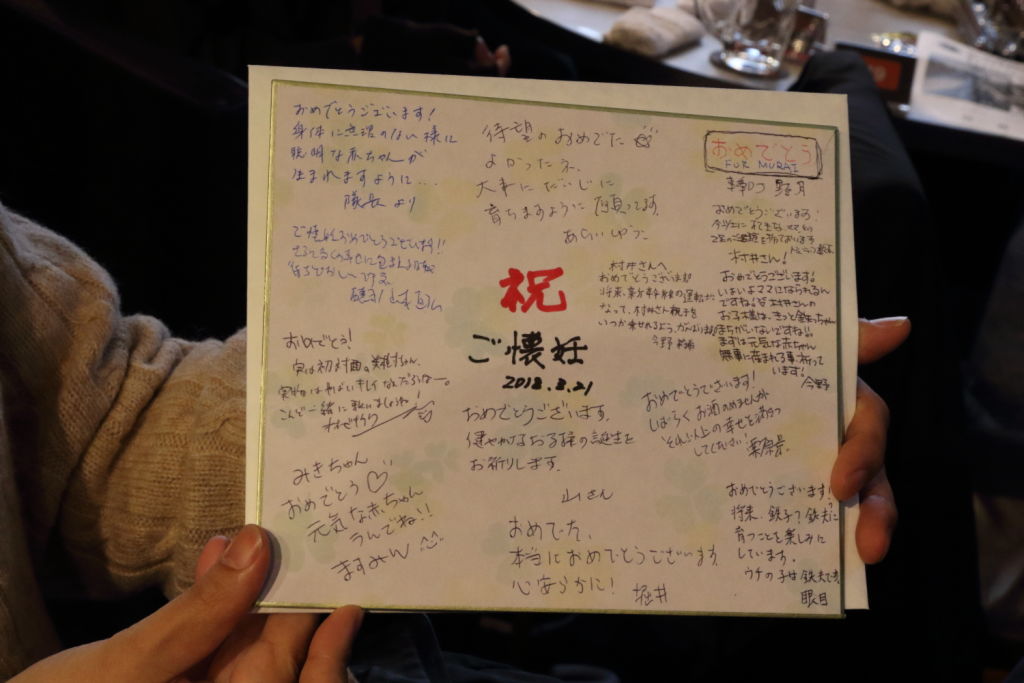 おめでとうございます!
身体に無理のない様に
聡明な赤ちゃんが
生まれますように...
隊長より
待望のおめでた
よかったネ、
大事にだいじに
育ちますように願ってます。
おめでとう
FOR MURAI
おめでとうございます!
村井さん!
おめでとうございます!
いよいよママになられるん
ですね!
お子様は、きっと鉄ちゃん
まちがいないですね!!
まずは元気な赤ちゃん
無事に産まれる事、祈って
います!
今野
ご懐妊おめでとうございます!!
村井さんへ
おめでとうございます
将来、新幹線の運転士に
なって、村井さん親子を
いつか乗せれるよう、がんばります
今野
祝
ご懐妊
2018.3.21
おめでとう!
実は初対面。
こんど一緒に歌いましょうね!
おめでとうございます。
健やかなお子様の誕生を
お祈りします。
山さん
おめでとうございます!
しばらくお酒のめませんが
それ以上の幸せを
してください!
栗原景
みきちゃん
おめでとう♡
元気な赤ちゃん
うんでね!!
ますみん
おめでた、
本当におめでとうございます。
心安らかに!
堀井
おめでとうございます!
将来、鉄子?鉄夫?に
育つことを楽しみに
しています。
ウチの子は鉄夫です。